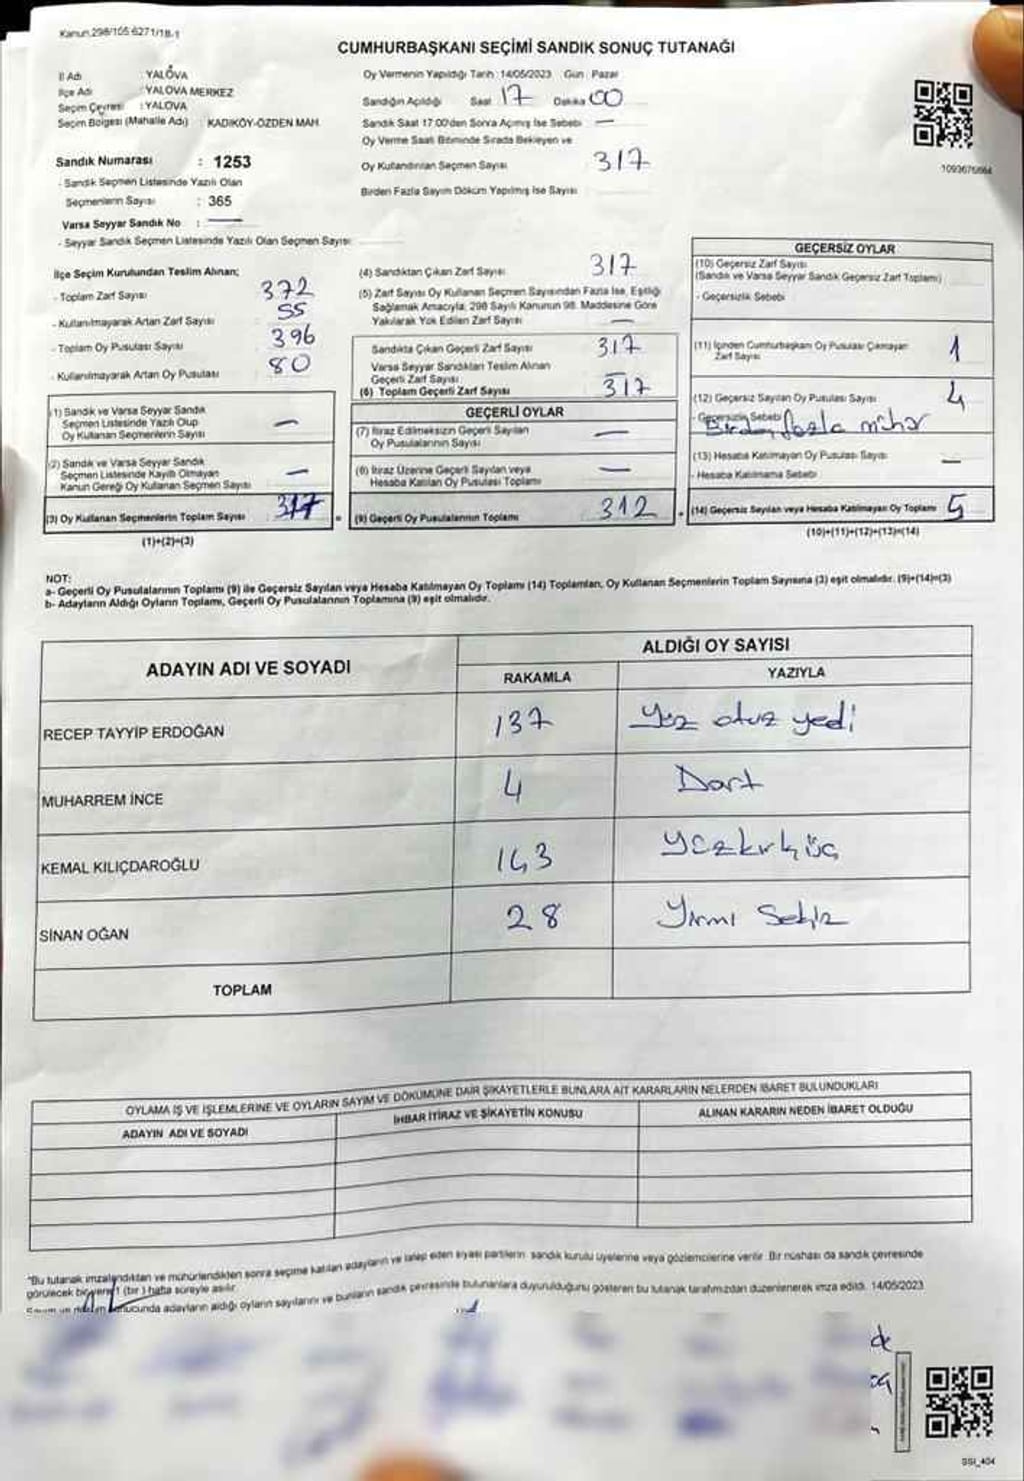 Kanun.298/105 6271/18-1
CUMHURBAŞKANI SEÇİMİ SANDIK SONUÇ TUTANAĞI
İl Adı : YALOVA
İlçe Adı : YALOVA MERKEZ
Seçim Çevresi : YALOVA
Seçim Bölgesi (Mahalle Adı) : KADIKÖY-ÖZDEN MAH.
Sandık Numarası : 1253
- Sandık Seçmen Listesinde Yazılı Olan
Seçmenlerin Sayısı : 365
Varsa Seyyar Sandık No : —
- Seyyar Sandık Seçmen Listesinde Yazılı Olan Seçmen Sayısı
Oy Vermenin Yapıldığı Tarih : 14/05/2023 Gün : Pazar
Sandığın Açıldığı Saat 17 Dakika 00
Sandık Saat 17:00'den Sonra Açımış İse Sebebi —
Oy Verme Saati Bitiminde Sırada Bekleyen ve
Oy Kullandırılan Seçmen Sayısı 317
Birden Fazla Sayım Döküm Yapılmış İse Sayısı
1093676664
İlçe Seçim Kurulundan Teslim Alınan;
- Toplam Zarf Sayısı 372
- Kullanılmayarak Artan Zarf Sayısı 55
- Toplam Oy Pusulası Sayısı 396
- Kullanılmayarak Artan Oy Pusulası 80
(1) Sandık ve Varsa Seyyar Sandık
Seçmen Listesinde Yazılı Olup
Oy Kullanan Seçmenlerin Sayısı —
(2) Sandık ve Varsa Seyyar Sandık
Seçmen Listesinde Kayıtlı Olmayan
Kanun Gereği Oy Kullanan Seçmen Sayısı —
(3) Oy Kullanan Seçmenlerin Toplam Sayısı 317
(1)+(2)=(3)
(4) Sandıktan Çıkan Zarf Sayısı 317
(5) Zarf Sayısı Oy Kullanan Seçmen Sayısından Fazla İse, Eşitliği
Sağlamak Amacıyla; 298 Sayılı Kanunun 98. Maddesine Göre
Yakılarak Yok Edilen Zarf Sayısı —
Sandıkta Çıkan Geçerli Zarf Sayısı 317
Varsa Seyyar Sandıkları Teslim Alınan
Geçerli Zarf Sayısı —
(6) Toplam Geçerli Zarf Sayısı 317
GEÇERLİ OYLAR
(7) İtiraz Edilmeksizin Geçerli Sayılan
Oy Pusulalarının Sayısı —
(8) İtiraz Üzerine Geçerli Sayılan veya
Hesaba Katılan Oy Pusulası Toplamı —
= (9) Geçerli Oy Pusulalarının Toplamı 312
GEÇERSİZ OYLAR
(10) Geçersiz Zarf Sayısı
(Sandık ve Varsa Seyyar Sandık Geçersiz Zarf Toplamı)
- Geçersizlik Sebebi
(11) İçinden Cumhurbaşkanı Oy Pusulası Çıkmayan
Zarf Sayısı 1
(12) Geçersiz Sayılan Oy Pusulası Sayısı 4
- Geçersizlik Sebebi Birden fazla mühür
(13) Hesaba Katılmayan Oy Pusulası Sayısı —
- Hesaba Katılmama Sebebi
+ (14) Geçersiz Sayılan veya Hesaba Katılmayan Oy Toplamı 5
(10)+(11)+(12)+(13)=(14)
NOT:
a- Geçerli Oy Pusulalarının Toplamı (9) ile Geçersiz Sayılan veya Hesaba Katılmayan Oy Toplamı (14) Toplamları, Oy Kullanan Seçmenlerin Toplam Sayısına (3) eşit olmalıdır. (9)+(14)=(3)
b- Adayların Aldığı Oyların Toplamı, Geçerli Oy Pusulalarının Toplamına (9) eşit olmalıdır.
ADAYIN ADI VE SOYADI
ALDIĞI OY SAYISI
RAKAMLA YAZIYLA
RECEP TAYYİP ERDOĞAN 137 Yüz otuz yedi
MUHARREM İNCE 4 Dört
KEMAL KILIÇDAROĞLU 143 Yüzkırküç
SİNAN OĞAN 28 Yirmi Sekiz
TOPLAM
OYLAMA İŞ VE İŞLEMLERİNE VE OYLARIN SAYIM VE DÖKÜMÜNE DAİR ŞİKAYETLERLE BUNLARA AİT KARARLARIN NELERDEN İBARET BULUNDUKLARI
ADAYIN ADI VE SOYADI
İHBAR İTİRAZ VE ŞİKAYETİN KONUSU
ALINAN KARARIN NEDEN İBARET OLDUĞU
*Bu tutanak imzalandıktan ve mühürlendikten sonra seçime katılan adayların ve talep eden siyasi partilerin sandık kurulu üyelerine veya gözlemcilerine verilir. Bir nüshası da sandık çevresinde
görülecek bir yere 1 (bir) hafta süreyle asılır.
sonucunda adayların aldığı oyların sayılarını ve bunların sandık çevresinde bulunanlara duyurulduğunu gösteren bu tutanak tarafımızdan düzenlenerek imza edildi. 14/05/2023
SSI_404